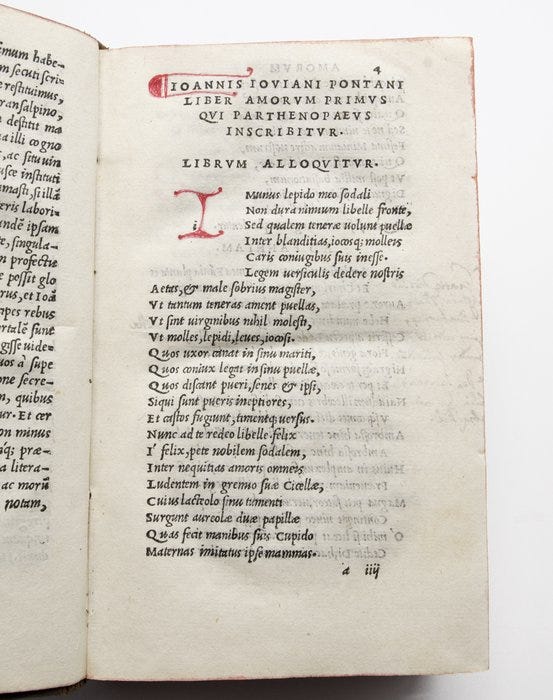 imum habe-
m secuti scri-
restituimus,
ransalpino,
destitit ma
illi cogno
, ac situ uin
usce instituti
masti, si illā
eris labori-
undē ipsam
, singula-
m profectie
possit glo
rus, et Ioā
mpes rebus
rtalē sunt
gisse uide-
uos à supe
one secre-
m, quibus
ur. Et cer
on minus
mq; præ-
a litera-
ac moru
notam,
4
IOANNIS IOVIANI PONTANI
LIBER AMORVM PRIMVS
QVI PARTHENOPAEVS
INSCRIBITVR.
LIBRVM ALLOQVITVR.
I i Munus lepido meo sodali
Non dura nimium libelle fronte,
Sed qualem teneræ uolunt puellæ
Inter blanditias, iocosq; molleis
Caris coniugibus suis inesse.
Legem uersiculis dedere nostris
Aetas, & male sobrius magister,
Vt tantum teneras ament puellas,
Vt sint uirginibus nihil molesti,
Vt molles, lepidi, leues, iocosi.
Quos uxor canat in sinu mariti,
Quos coniux legat in sinu puellæ,
Quos discant pueri, senes & ipsi,
Siqui sunt pueris ineptiores,
Et castos fugiunt, timentq; uersus.
Nunc ad te redeo libelle felix
I' felix, pete nobilem sodalem,
Inter nequitias amoris omneis
Ludentem in gremio suæ Cicellæ,
Cuius lacteolo sinu timenti
Surgunt aureolæ duæ papillæ
Quas fecit manibus suis Cupido
Maternas imitatus ipse mammas.
a iiij